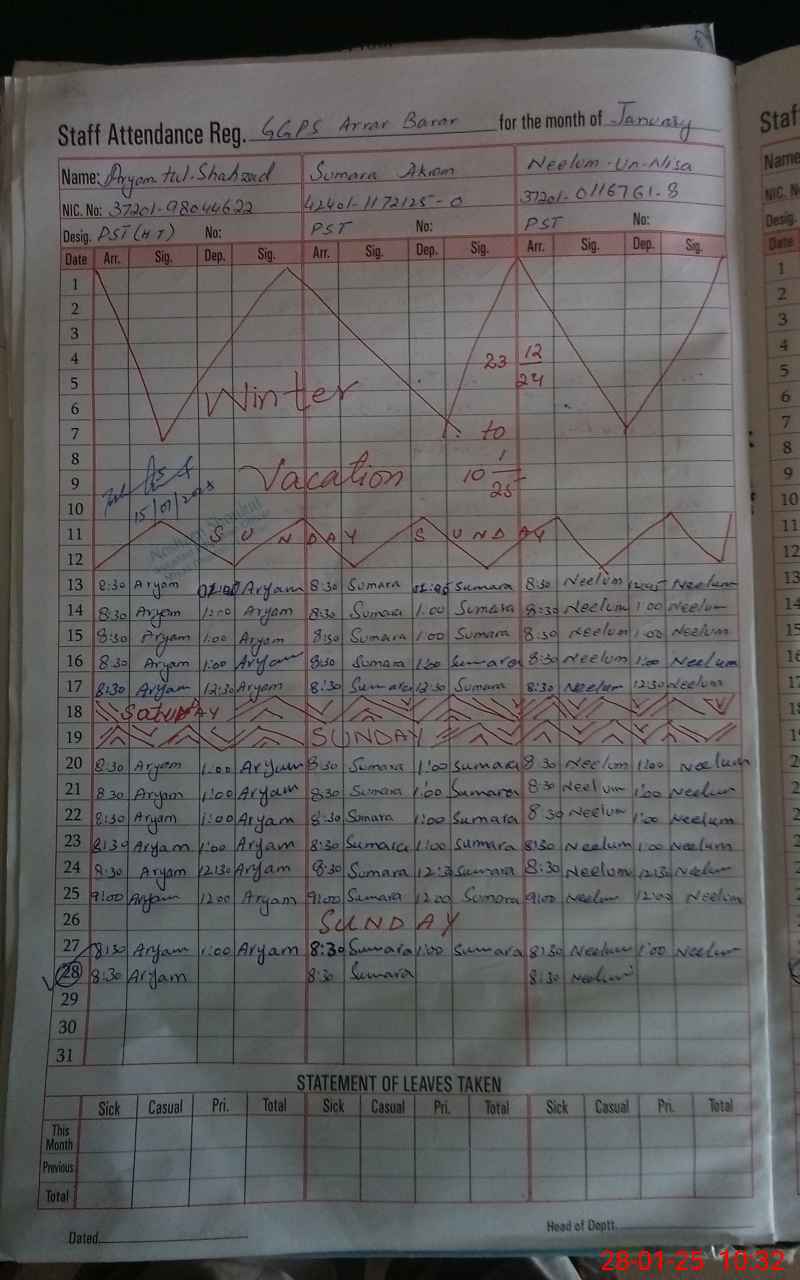 Staff Attendance Reg. GGPS Arrar Barar for the month of January
Name: Aryam tul-Shahzad Sumara Akram Neelum-Un-Nisa
NIC. No: 37201-98044622 42401-1172125-0 37201-0116761-8
Desig. PST (HT) No: PST No: PST No:
Date Arr. Sig. Dep. Sig. Arr. Sig. Dep. Sig. Arr. Sig. Dep. Sig.
1
2
3
4 23 12
5 Winter 24
6
7 to
8 1
9 Vacation 10 25
10 15/01/2025
11 SUNDAY SUNDAY
12
13 8:30 Aryam Aryam 8:30 Sumara Sumara 8:30 Neelum Neelum
14 8:30 Aryam 1:00 Aryam 8:30 Sumara 1:00 Sumara 8:30 Neelum 1:00 Neelum
15 8:30 Aryam 1:00 Aryam 8:30 Sumara 1:00 Sumara 8:30 Neelum 1:00 Neelum
16 8:30 Aryam 1:00 Aryam 8:30 Sumara 1:00 Sumara 8:30 Neelum 1:00 Neelum
17 8:30 Aryam 12:30 Aryam 8:30 Sumara 12:30 Sumara 8:30 Neelum 12:30 Neelum
18 SatuRDAY
19 SUNDAY
20 8:30 Aryam 1:00 Aryam 8:30 Sumara 1:00 Sumara 8:30 Neelum 1:00 Neelum
21 8:30 Aryam 1:00 Aryam 8:30 Sumara 1:00 Sumara 8:30 Neelum 1:00 Neelum
22 8:30 Aryam 1:00 Aryam 8:30 Sumara 1:00 Sumara 8:30 Neelum 1:00 Neelum
23 8:30 Aryam 1:00 Aryam 8:30 Sumara 1:00 Sumara 8:30 Neelum 1:00 Neelum
24 8:30 Aryam 12:30 Aryam 8:30 Sumara 12:30 Sumara 8:30 Neelum 12:30 Neelum
25 9:00 Aryam 12:00 Aryam 9:00 Sumara 12:00 Sumara 9:00 Neelum 12:00 Neelum
26 SUNDAY
27 8:30 Aryam 1:00 Aryam 8:30 Sumara 1:00 Sumara 8:30 Neelum 1:00 Neelum
28 8:30 Aryam 8:30 Sumara 8:30 Neelum
29
30
31
STATEMENT OF LEAVES TAKEN
Sick Casual Pri. Total Sick Casual Pri. Total Sick Casual Pri. Total
This Month
Previous
Total
Dated Head of Deptt.
28-01-25 10:32